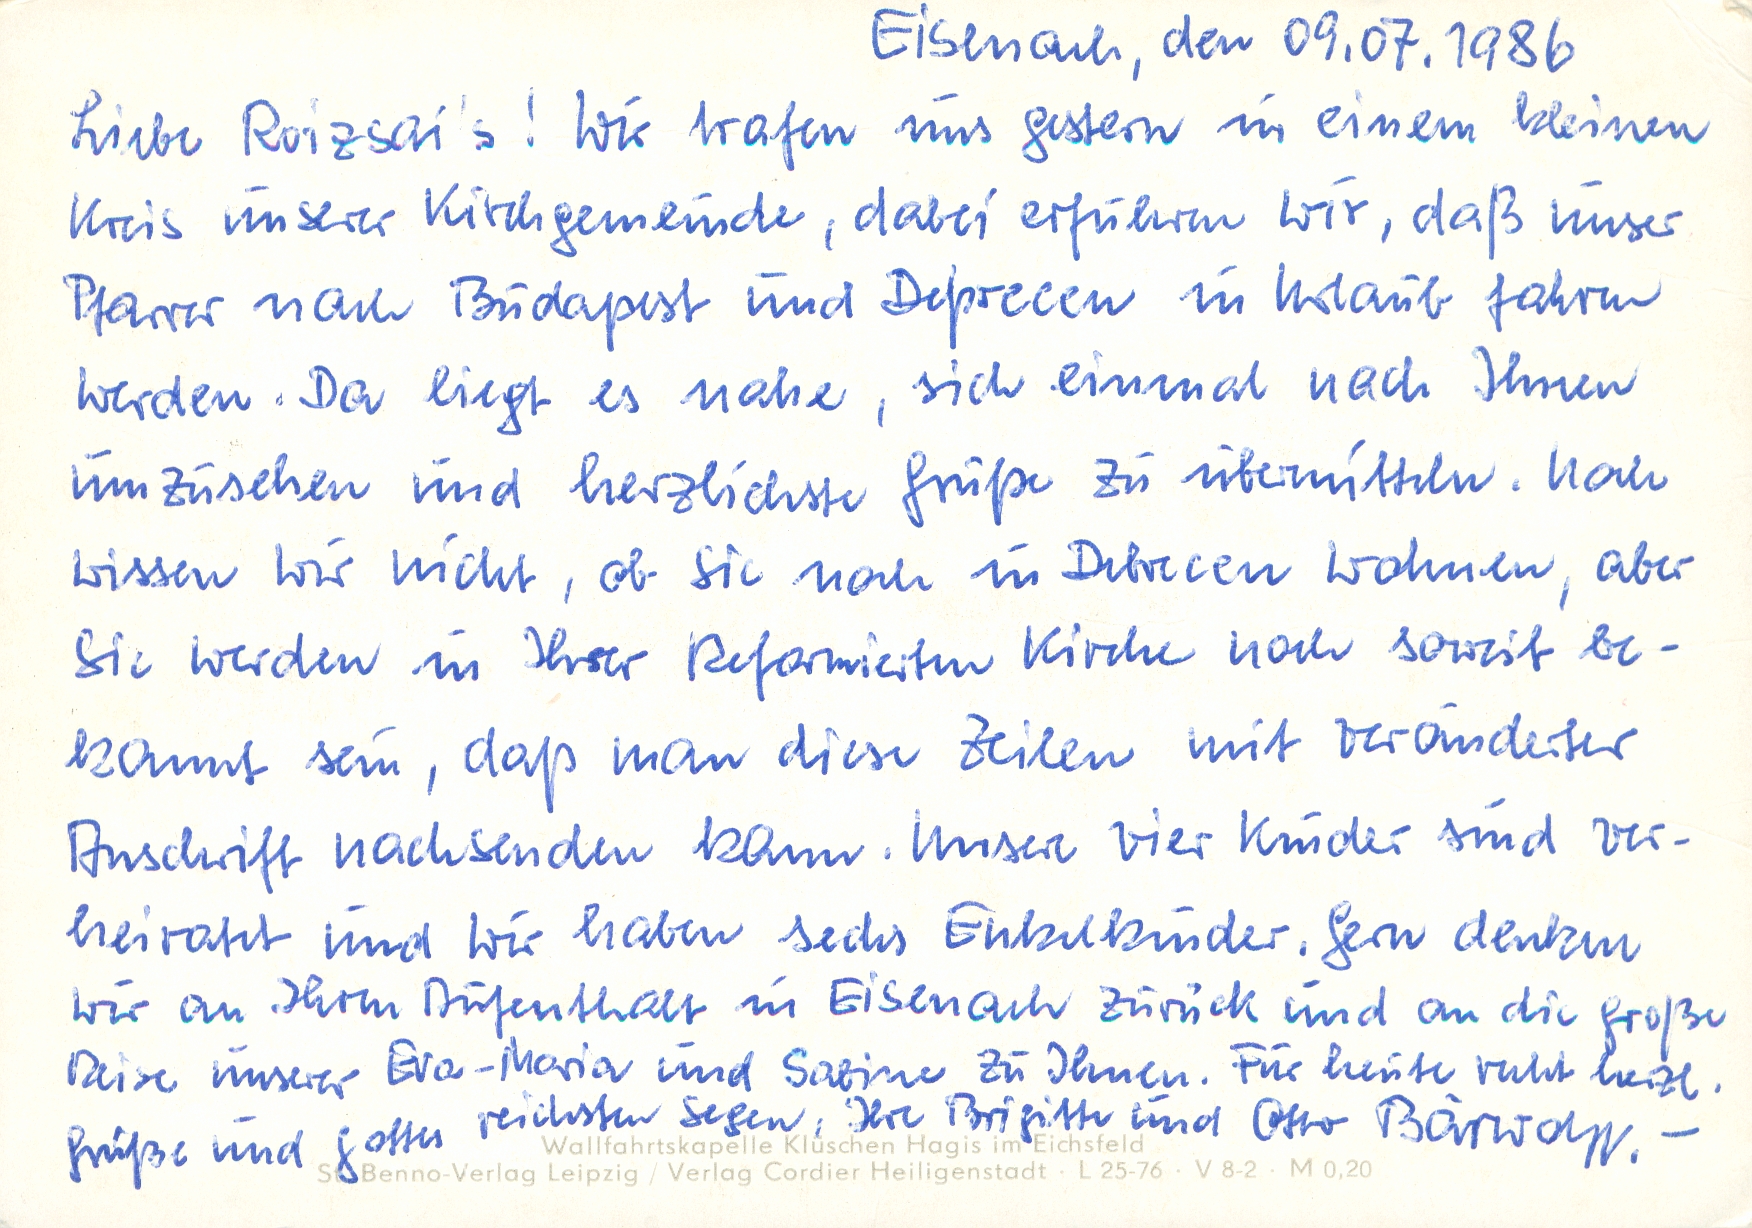 Eisenach, den 09.07.1986
Liebe Roizsai's! Wir trafen uns gestern in einem kleinen
Kreis unserer Kirchgemeinde, dabei erfuhren wir, daß unser
Pfarrer nach Budapest und Deprecen in Urlaub fahren
werden. Da liegt es nahe, sich einmal nach Ihnen
umzusehen und herzlichste Grüße zu übermitteln. Noch
wissen wir nicht, ob Sie noch in Debrecen wohnen, aber
Sie werden in Ihrer Reformierten Kirche noch soweit be-
kannt sein, daß man diese Zeilen mit veränderter
Anschrift nachsenden kann. Unsere vier Kinder sind ver-
heiratet und wir haben sechs Enkelkinder. Gern denken
wir an Ihren Aufenthalt in Eisenach zurück und an die große
Reise unserer Eva-Maria und Sabine zu Ihnen. Für heute recht herzl.
Grüße und Gottes reichsten Segen, Ihre Brigitte und Otto
Wallfahrtskapelle Klüschen Hagis im Eichsfeld
St. Benno-Verlag Leipzig / Verlag Cordier Heiligenstadt · L 25-76 · V 8-2 · M 0,20